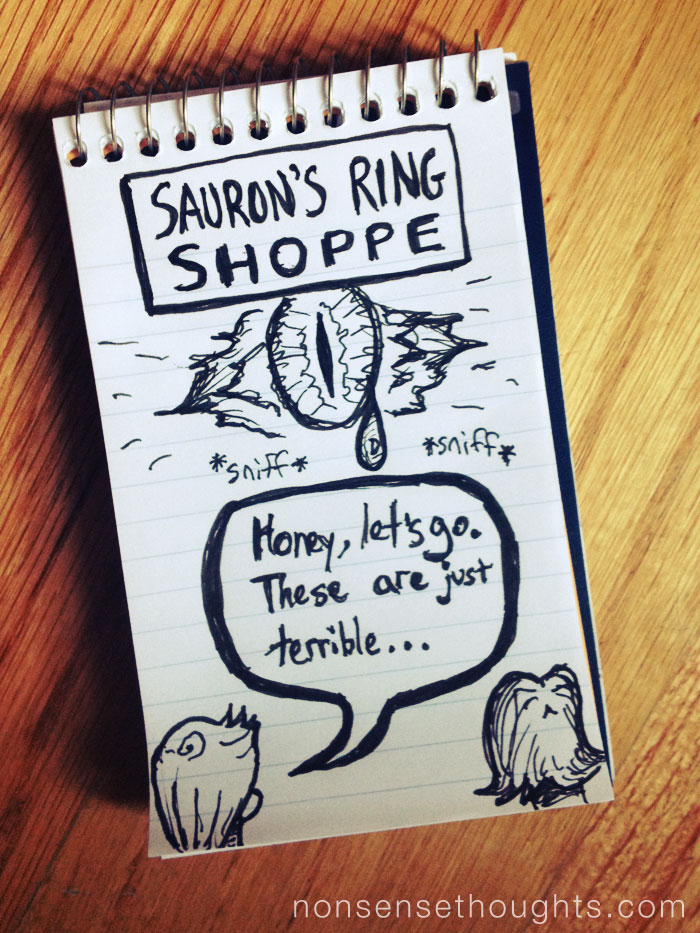 SAURON'S RING
SHOPPE
*sniff*
*sniff*
Honey, let's go.
These are just
terrible...
nonsensethoughts.com